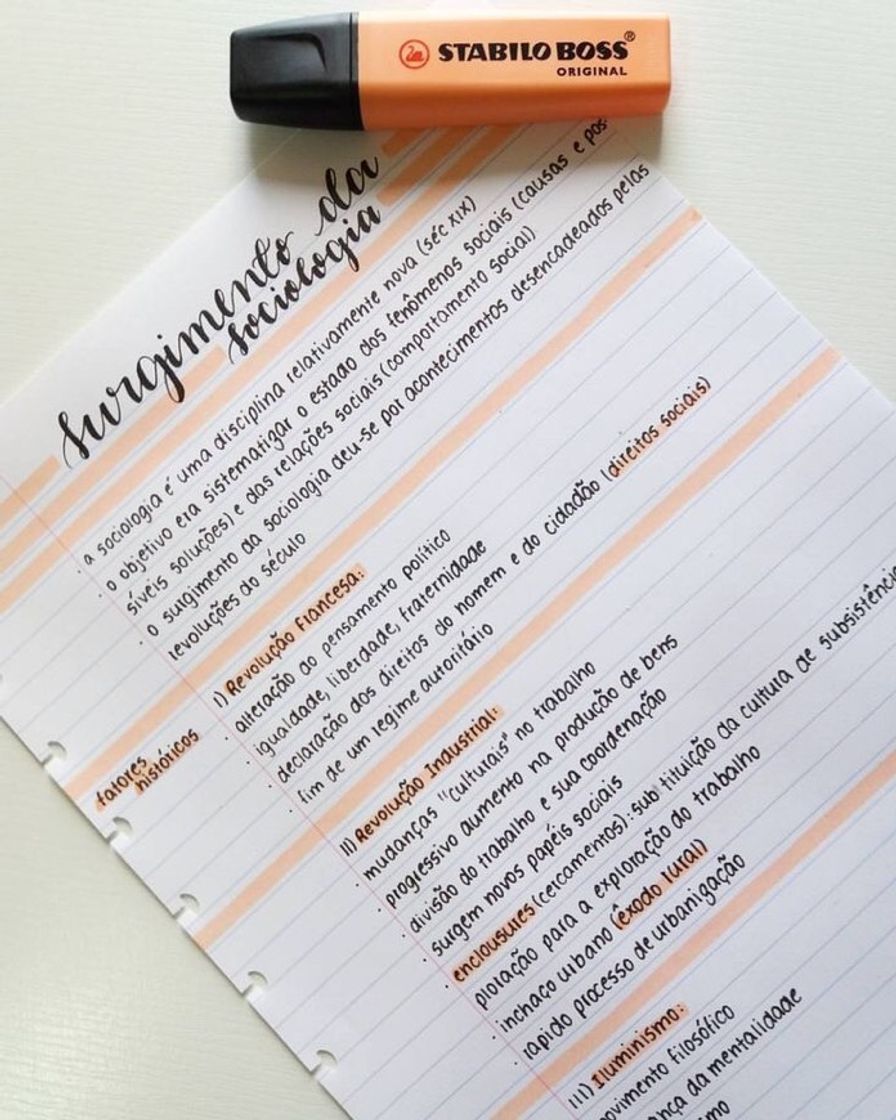 STABILO BOSS®
ORIGINAL
surgimento da
sociologia
· a sociologia é uma disciplina relativamente nova (séc XIX)
· o objetivo era sistematizar o estado dos fenômenos sociais (causas e pos-
síveis soluções) e das relações sociais (comportamento social)
· o surgimento da sociologia deu-se por acontecimentos desencadeados pelas
revoluções do século
fatores
históricos
I) Revolução Francesa:
· alteração do pensamento político
· igualdade, liberdade, fraternidade
· declaração dos direitos do homem e do cidadão (direitos sociais)
· fim de um regime autoritário
II) Revolução Industrial:
· mudanças "culturais" no trabalho
· progressivo aumento na produção de bens
· divisão do trabalho e sua coordenação
· surgem novos papéis sociais
· enclousures (cercamentos): substituição da cultura de subsistência
ploração para a exploração do trabalho
· inchaço urbano (êxodo rural)
· rapido processo de urbanização
III) Iluminismo:
movimento filosófico
da mentalidade